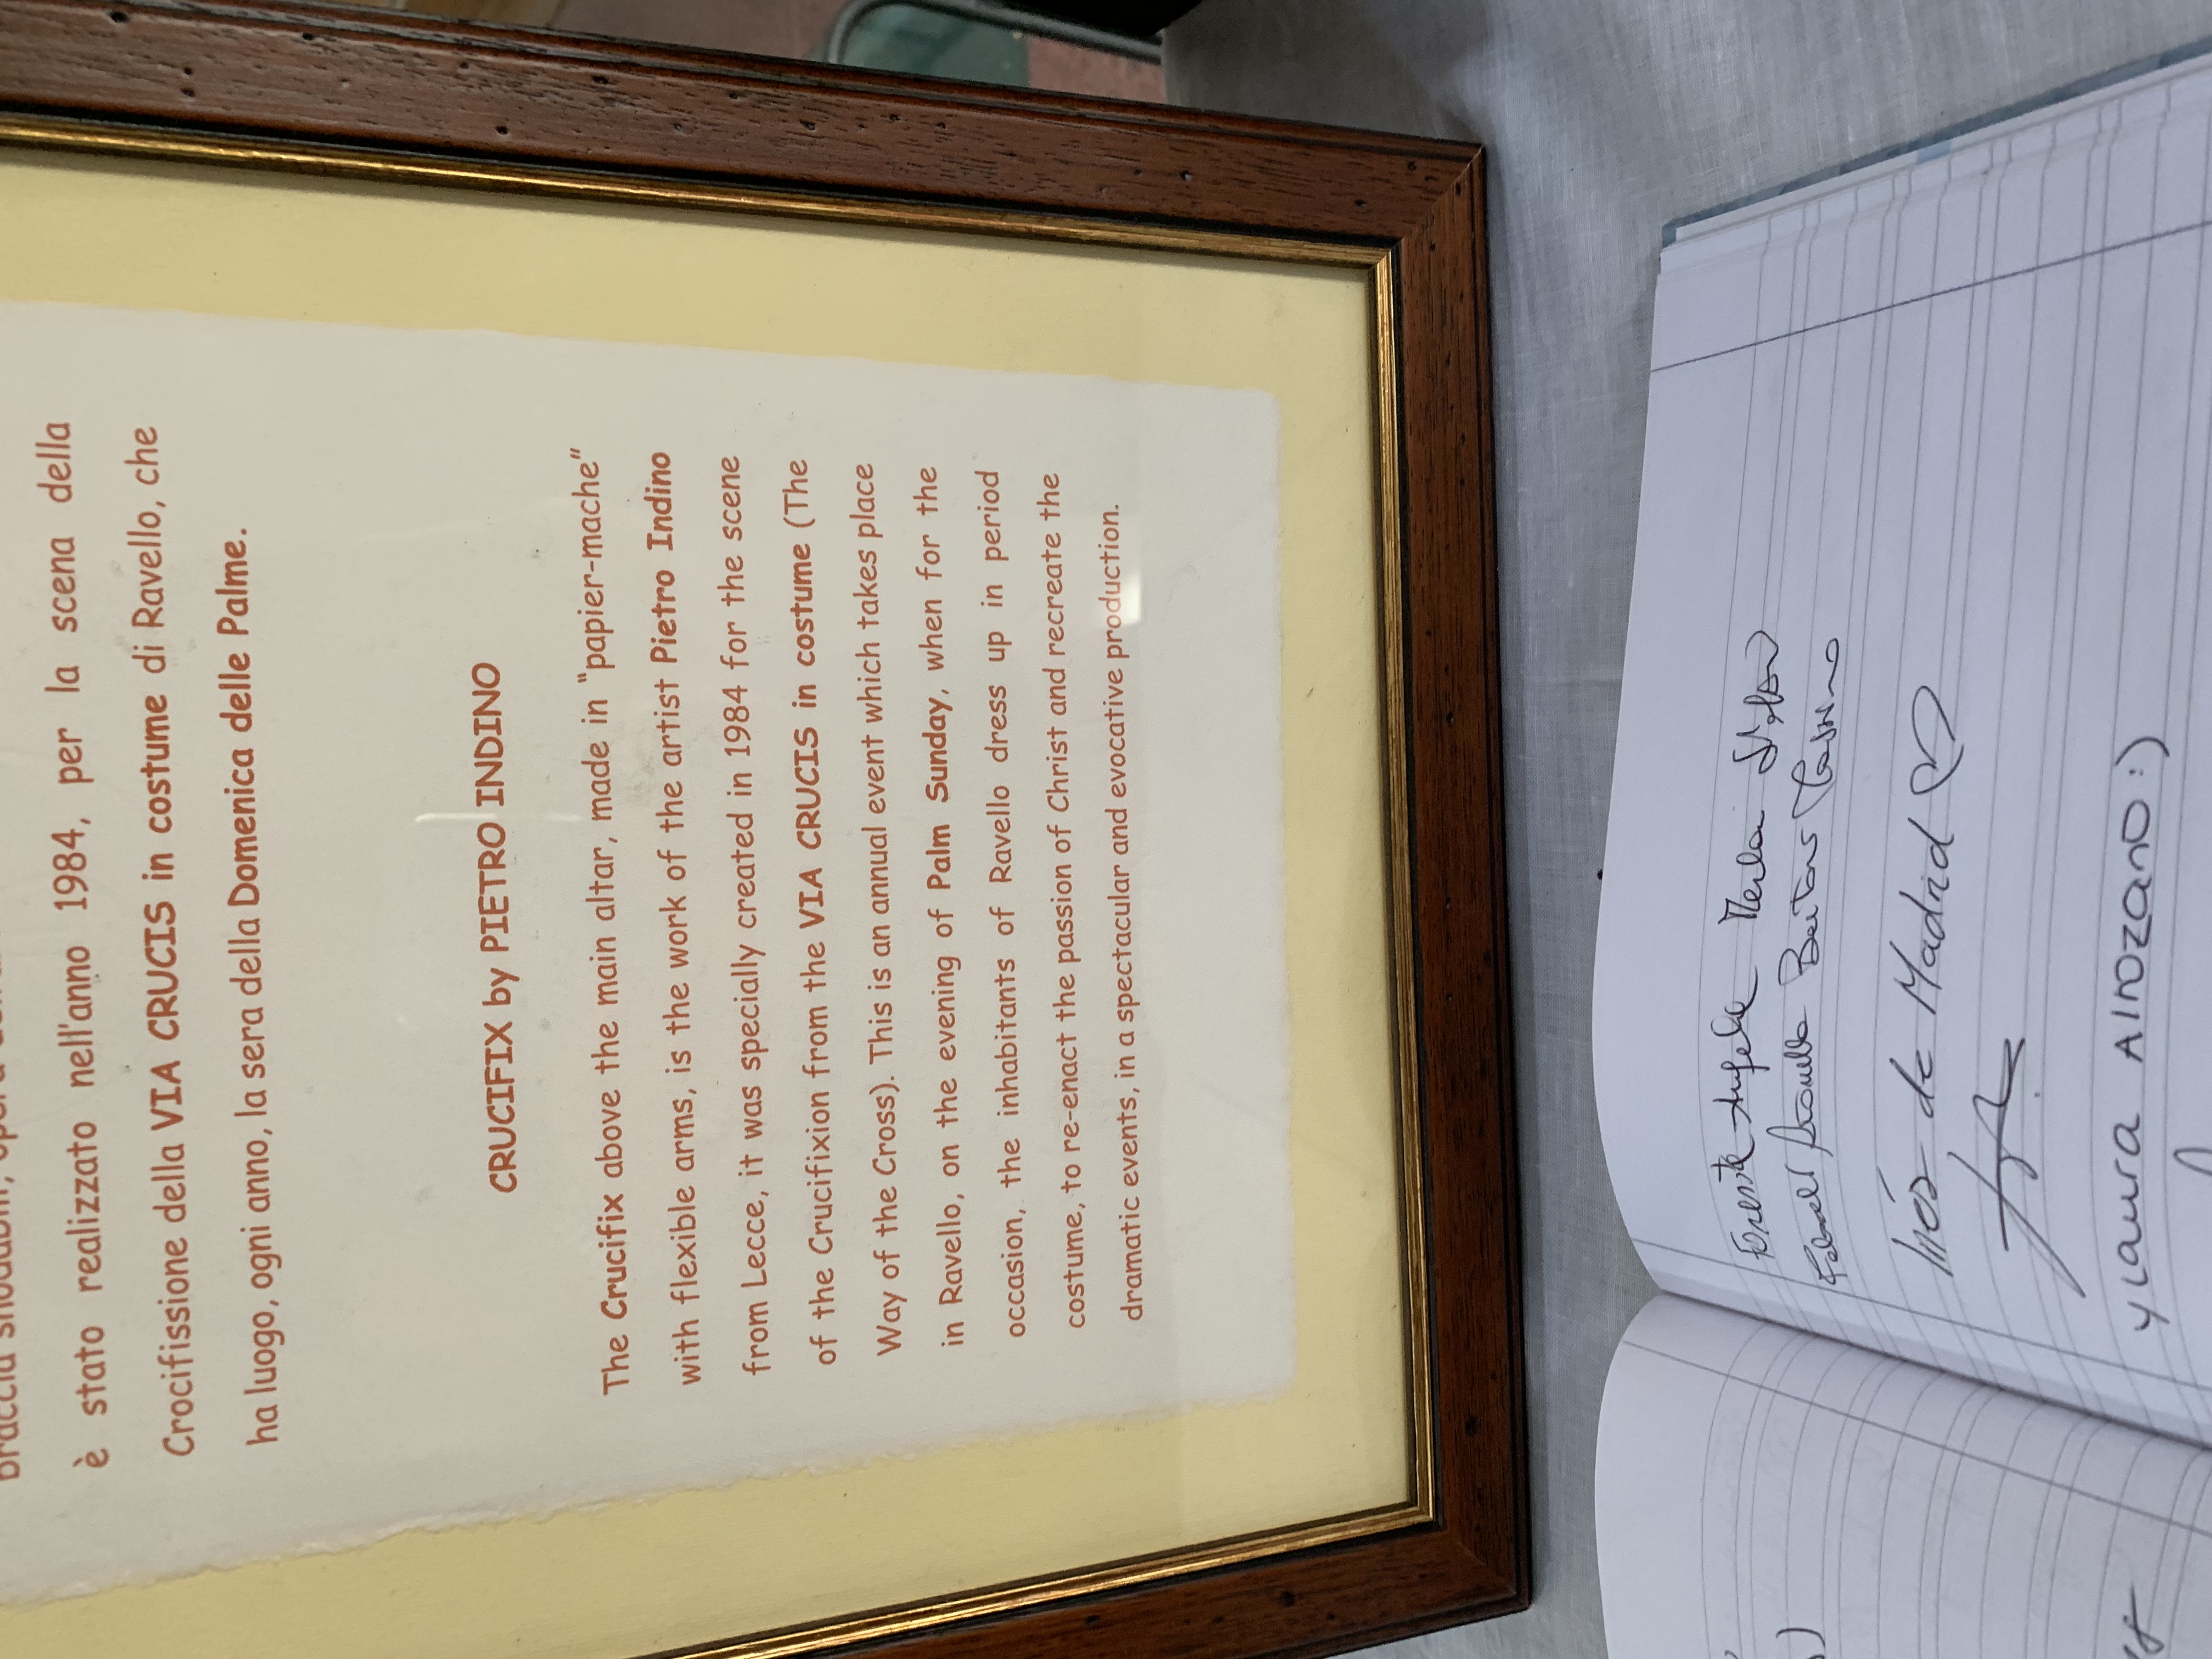 è stato realizzato nell'anno 1984, per la scena della
Crocifissione della VIA CRUCIS in costume di Ravello, che
ha luogo, ogni anno, la sera della Domenica delle Palme.
CRUCIFIX by PIETRO INDINO
The Crucifix above the main altar, made in "papier-mache"
with flexible arms, is the work of the artist Pietro Indino
from Lecce, it was specially created in 1984 for the scene
of the Crucifixion from the VIA CRUCIS in costume (The
Way of the Cross). This is an annual event which takes place
in Ravello, on the evening of Palm Sunday, when for the
occasion, the inhabitants of Ravello dress up in period
costume, to re-enact the passion of Christ and recreate the
dramatic events, in a spectacular and evocative production.
Inés de Madrid
y Laura
:)